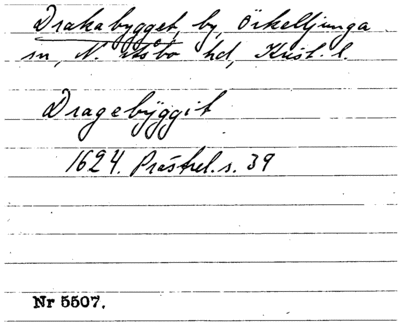 Drakabygget, by, Örkelljunga
sn, N. Åsbo hd, Krist. l.
Dragebÿggit
1624. Prästrel. s. 39
Nr 5507.